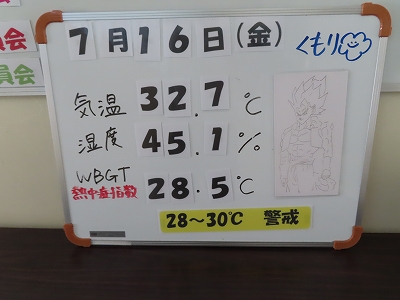 員会
員会
7月16日(金)
くもり
気温 32.7℃
湿度 45.1%
WBGT 28.5℃
熱中症指数
28～30℃ 警戒